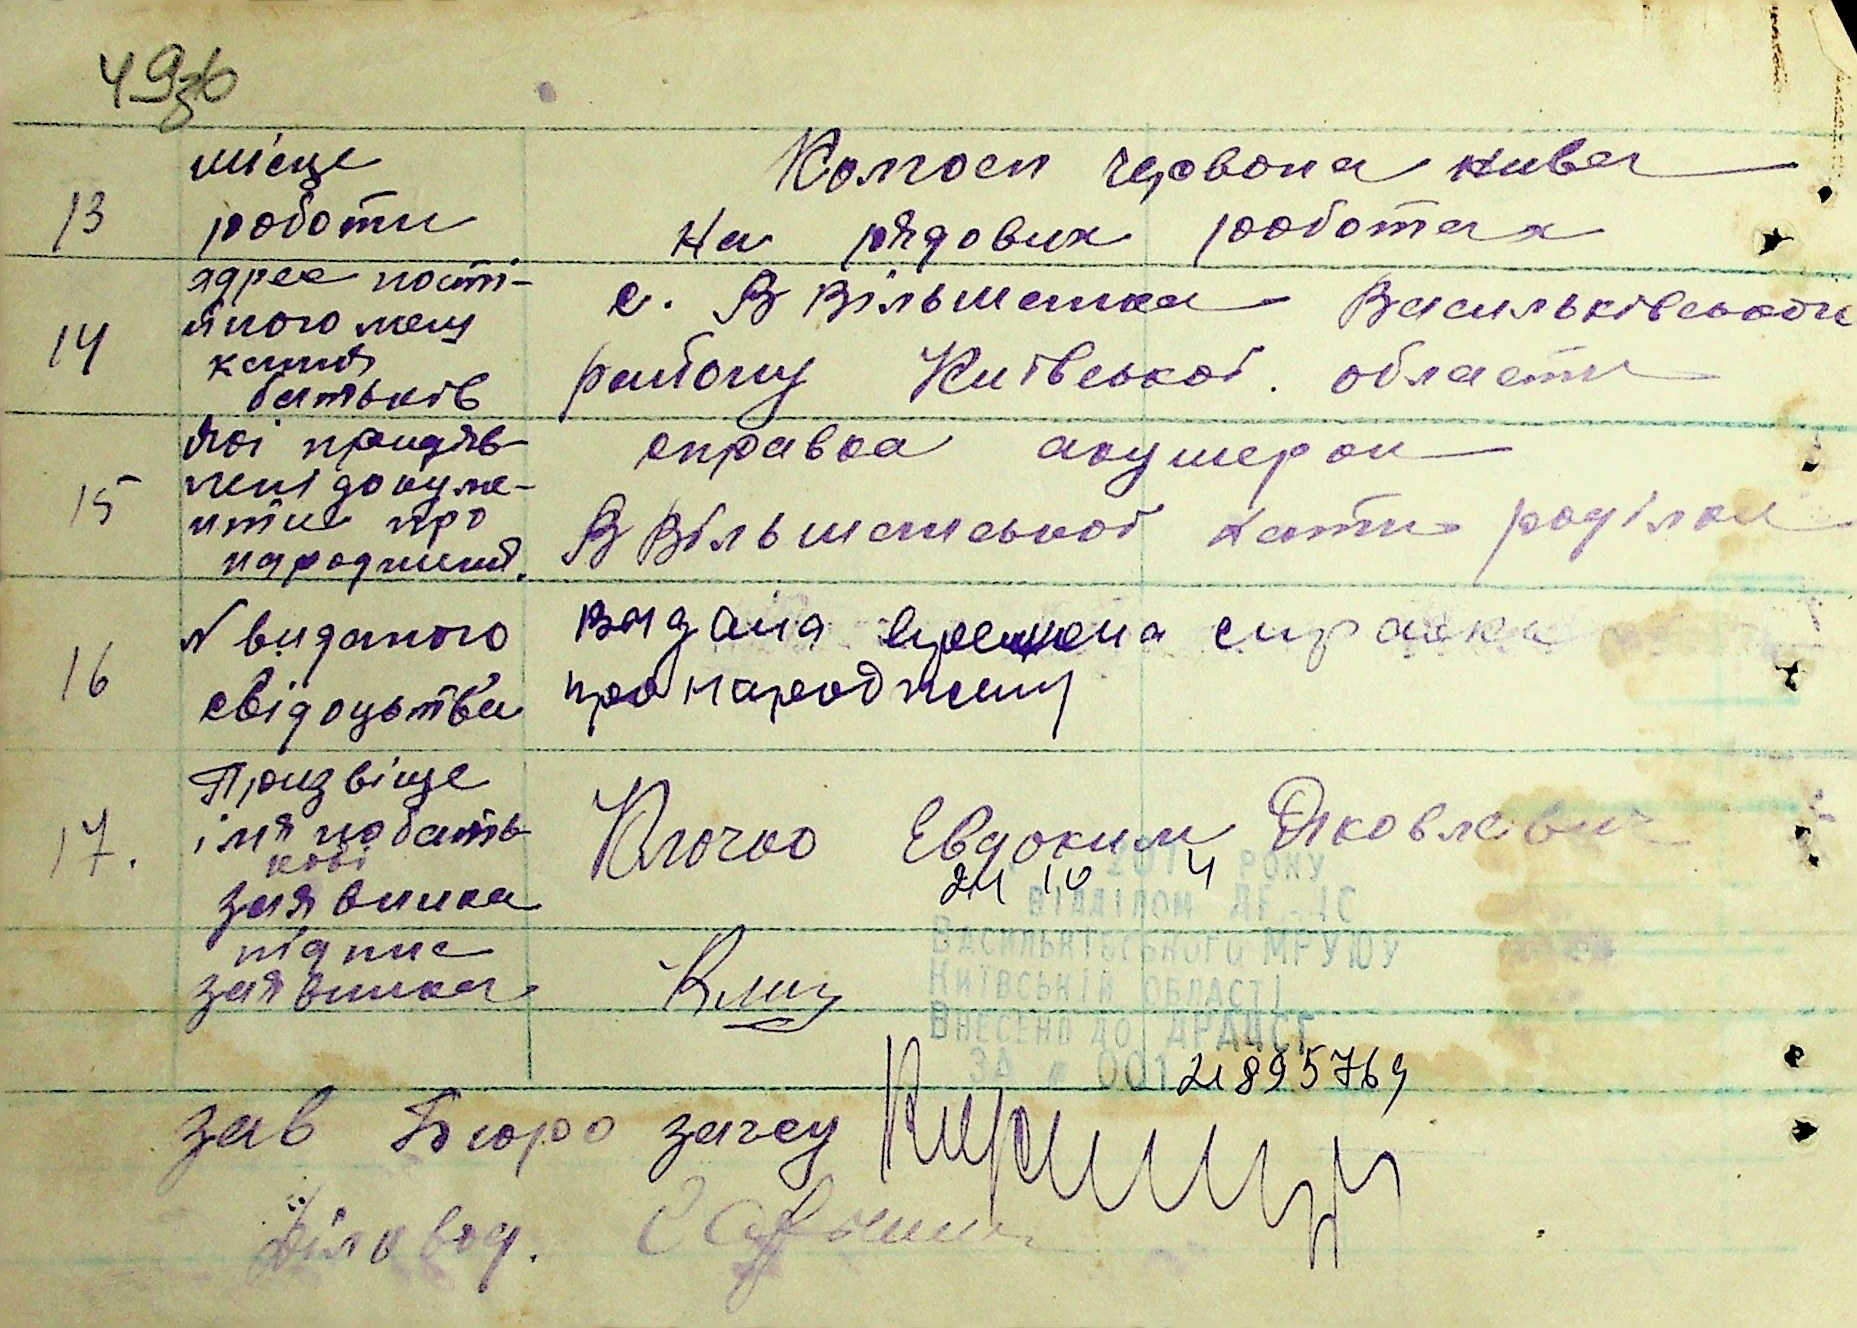 49зв
13 місце роботи
Колгосп Червона нива
на рядових роботах
14 адрес пості-
йного меш
кання
батьків
с. В Вільшанка Васильківського
району Київської області
15 які пред'яв-
лені докуме-
нти про
народження.
справка акушерки
В Вільшанської хати роділки
16 № виданого
свідоцтва
видана времена справка
про народжену
17. Призвіще
імя по бать-
кові
заявника
Клочко Евдоким Яковлевич
24 10 4
201 РОКУ
ВІДДІЛОМ ДР ІС
ВАСИЛЬКІВСЬКОГО МРУЮУ
КИЇВСЬКІЙ ОБЛАСТІ
ВНЕСЕНО ДО ДРАЦСГ
ЗА № 00121895769
підпис
заявника
зав Бюро загсу
Діловод.